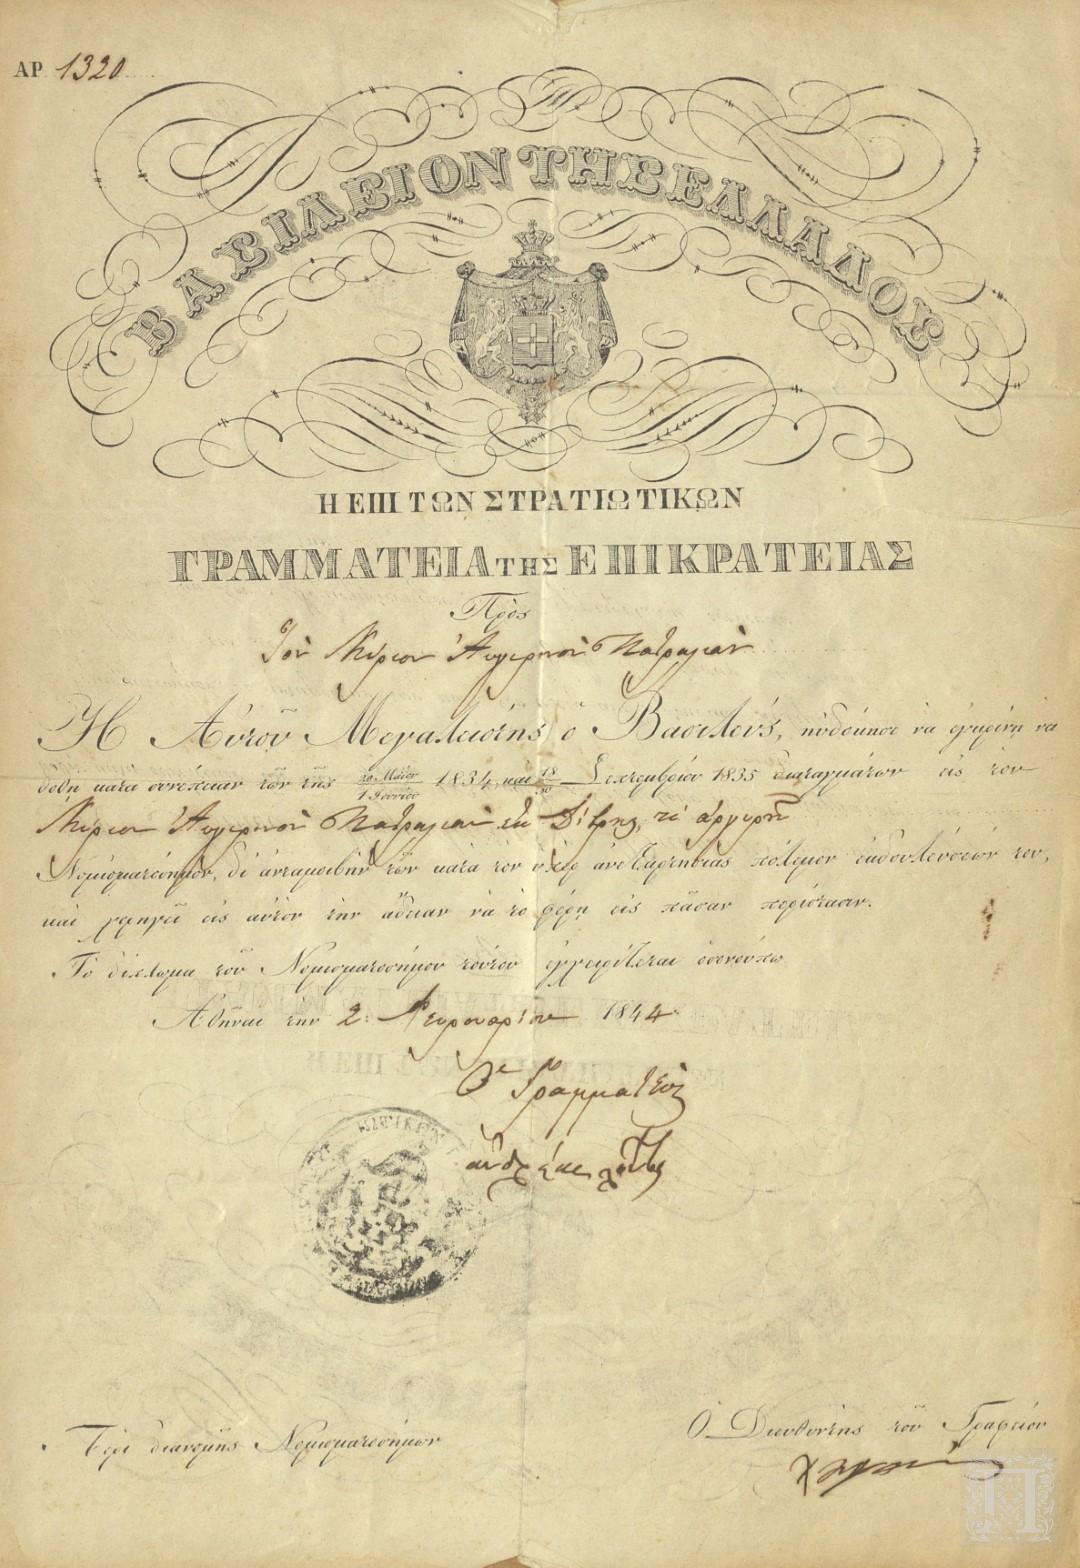 ΑΡ. 1320
ΒΑΣΙΛΕΙΟΝ ΤΗΣ ΕΛΛΑΔΟΣ
Η ΕΠΙ ΤΩΝ ΣΤΡΑΤΙΩΤΙΚΩΝ
ΓΡΑΜΜΑΤΕΙΑ ΤΗΣ ΕΠΙΚΡΑΤΕΙΑΣ
Πρὸς
Τὸν Κύριον Αυγερινὸν
Ἡ Αὐτοῦ Μεγαλειότης ὁ Βασιλεύς, ηὐδόκησε νὰ ἐγκρίνῃ νὰ
δοθῇ κατὰ συνέπειαν τῶν τῆς 20 Μαΐου / 1 Ἰουνίου 1834, καὶ 18 / 30 Σεπτεμβρίου 1835 διαταγμάτων εἰς τὸν
Κύριον Αυγερινὸν ἐκ τὸ ἀργυροῦν
Νομισματόσημον, δι' ἀνταμοιβὴν τῶν κατὰ τὸν ὑπὲρ ἀνεξαρτησίας πόλεμον ἐκδουλεύσεών του,
καὶ χορηγεῖ εἰς αὐτὸν τὴν ἄδειαν νὰ τὸ φέρῃ εἰς πᾶσαν περίστασιν.
Τὸ δίπλωμα τοῦ Νομισματοσήμου τούτου ἐγχειρίζεται
Ἀθῆναι τὴν 2 Φευρουαρίου 1844
Ὁ Γραμματεὺς
Περὶ διανομῆς Νομισματοσήμων
Ὁ Διευθυντὴς τοῦ Γραφείου